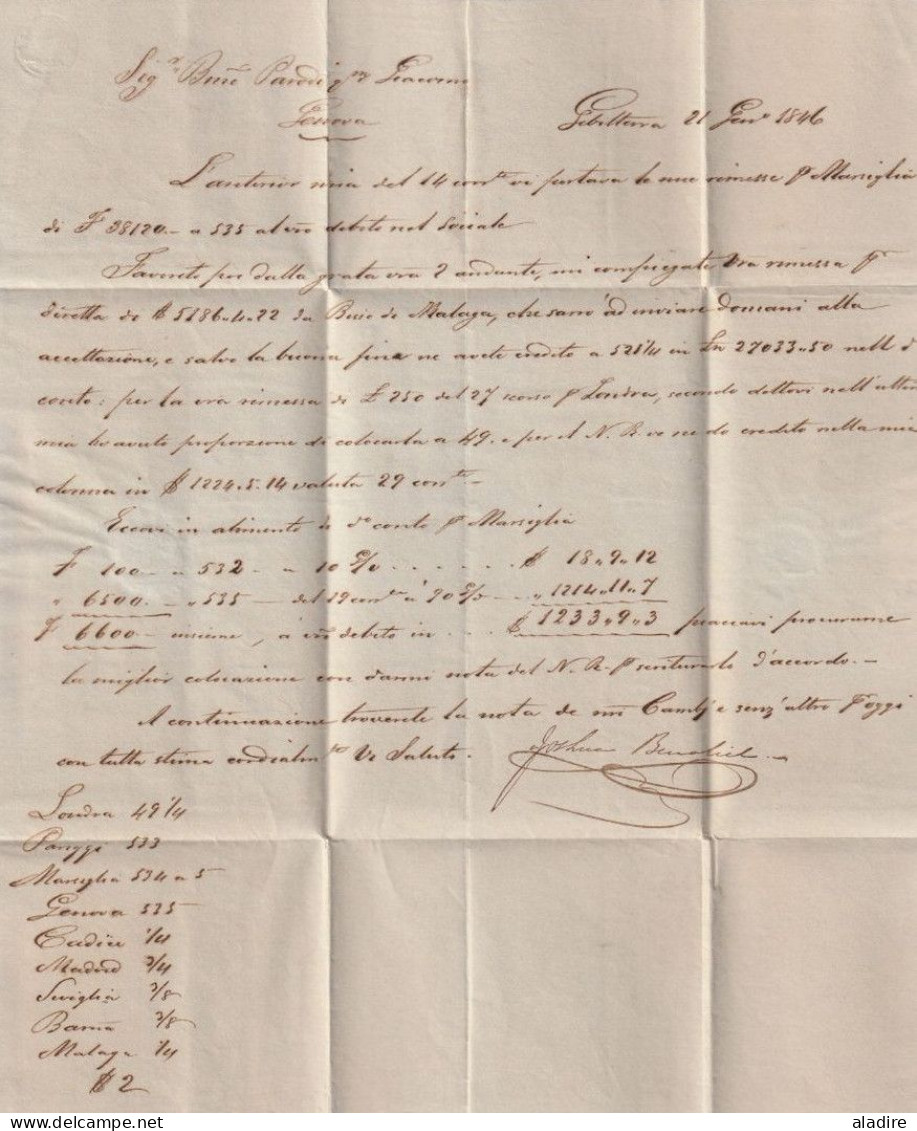 Sig.r Parodi q.m Giacomo
Genova
Gibilterra 21 Gen.o 1846
L'anterior mia del 14 corr.te vi portava le mie rimesse p Marsiglia
di F 38120.- a 535 al vro debito nel sociale
Favorito poi dalla grata vra 2 andante, mi compiegate vra rimessa p
diretta di $ 5186.4.22 da Malaga, che sarò ad inviare domani alla
accettazione, e salvo la buona fine ne avete credito a 521 1/4 in Ln 27033.50 nell d
conto: per la vra rimessa di £ 250 del 27 scorso p Londra, secondo dettovi nell'altra
mia ho avuto proporzione di colocarla a 49. e per il N. R. ve ne do credito nella mia
colonna in $ 1224.5.14 valuta 29 corr.te -
Eccovi in alimento di d.o conto p Marsiglia
F 100 - a 532 - a 10 g/v . . . . . $ 18 " 9 " 12
" 6500 - " 535 - del 19 corr.te a 90 g/v - - " 1214 " 11 " 7
F 6600 - insieme, a vro debito in - - - $ 1233 " 9 " 3 piacciavi procurarne
la miglior colocazione con darmi nota del N. R. p scriturarlo d'accordo. -
A continuazione troverete la nota de nri Cambj e senz'altro p oggi
con tutta stima cordialm.te Ve Saluto.
Joshua Benoliel
Londra 49 1/4
Pariggi 533
Marsiglia 534 a 5
Genova 535
Cadice 1/4
Madrid 3/4
Siviglia 3/8
Barna 3/8
Malaga 1/4
$ 2
alidaf - delcampe.net